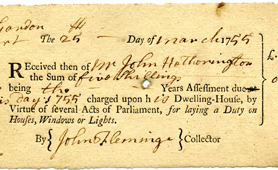 London
The 25 Day of march 1755
Received then of Mr John Hethorington
the Sum of five Shillings
being Years Assessment due
day 1755 charged upon his Dwelling-House, by
Virtue of several Acts of Parliament, for laying a Duty on
Houses, Windows or Lights.
By { John Fleminge } Collector